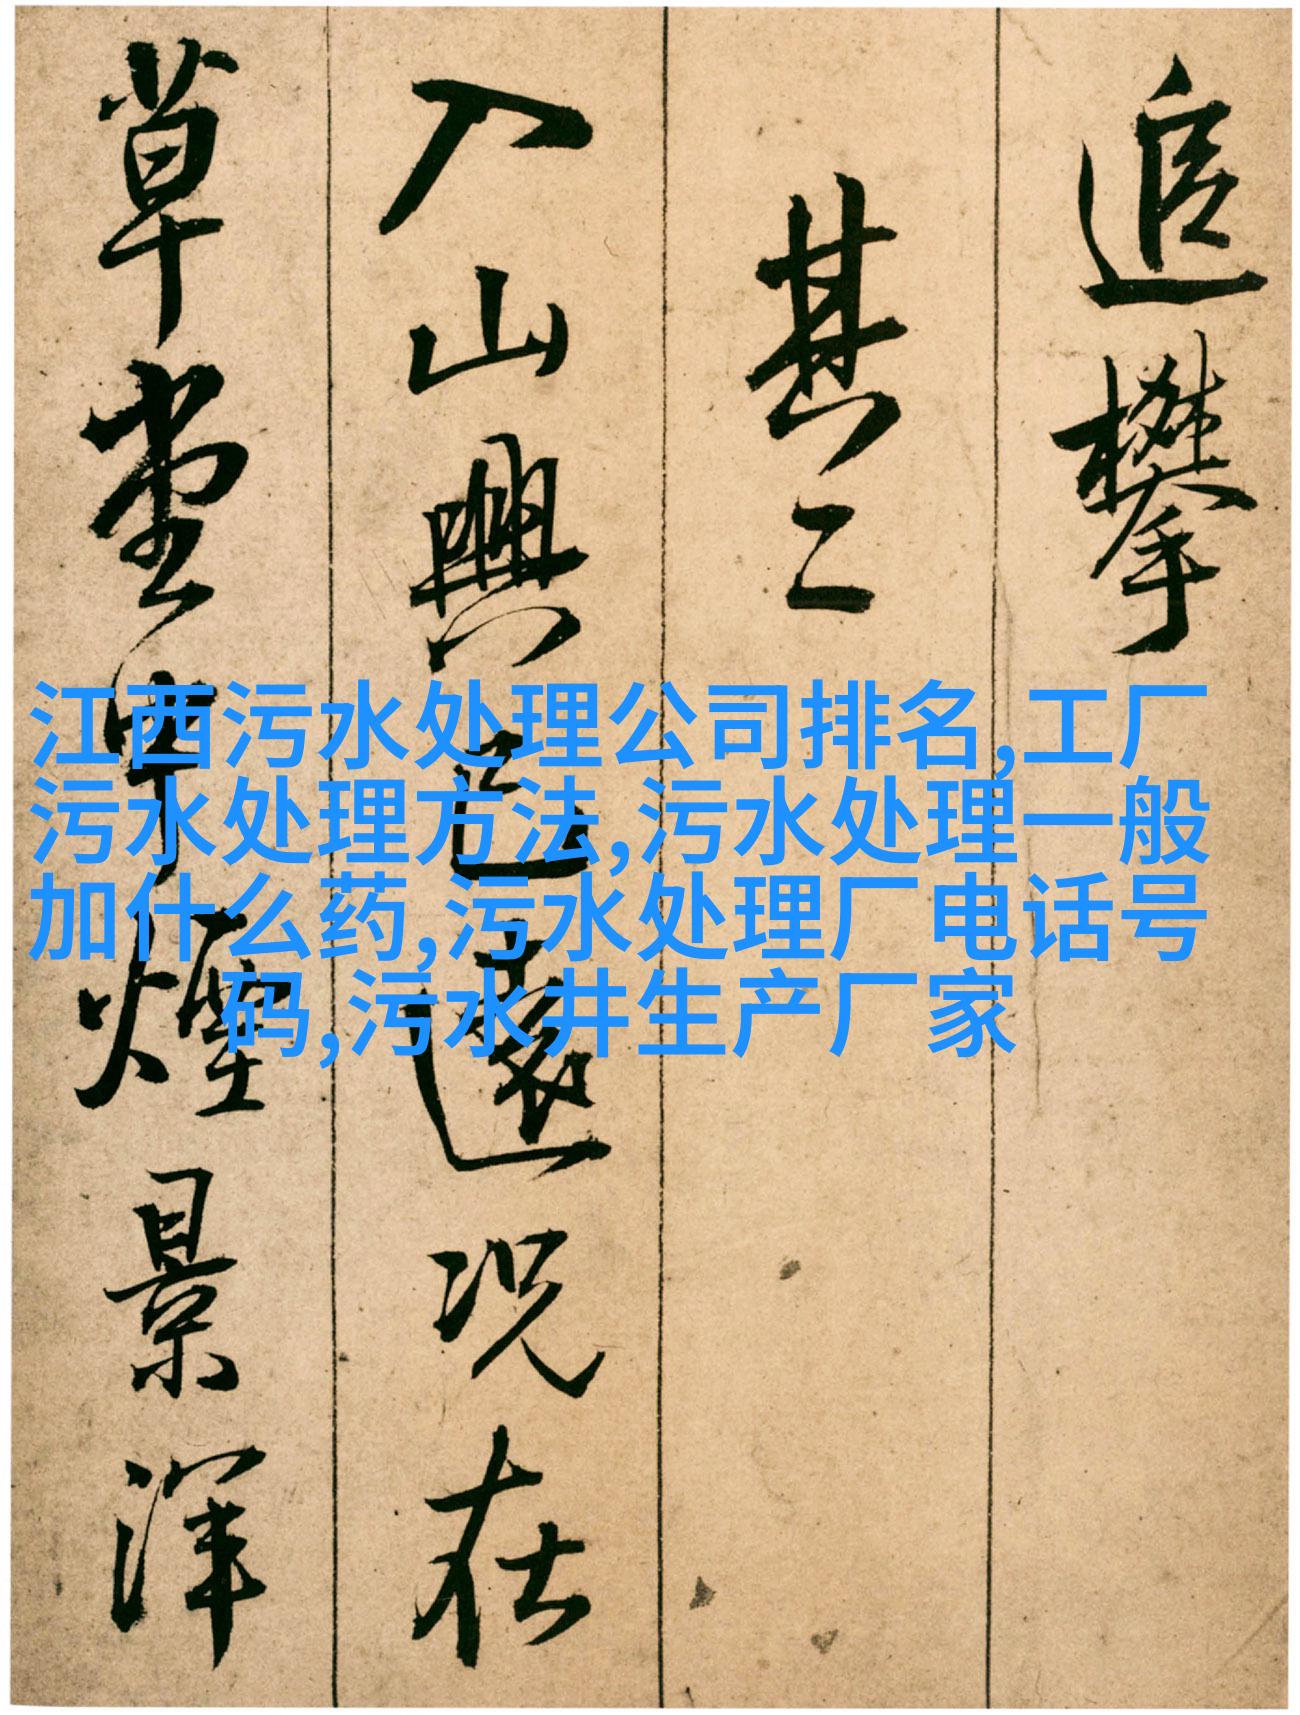 追攀
其二
入山興已遠況在
草堂中煙景渾
江西污水处理公司排名,工厂
污水处理方法,污水处理一般
加什么药,污水处理厂电话号
码,污水井生产厂家